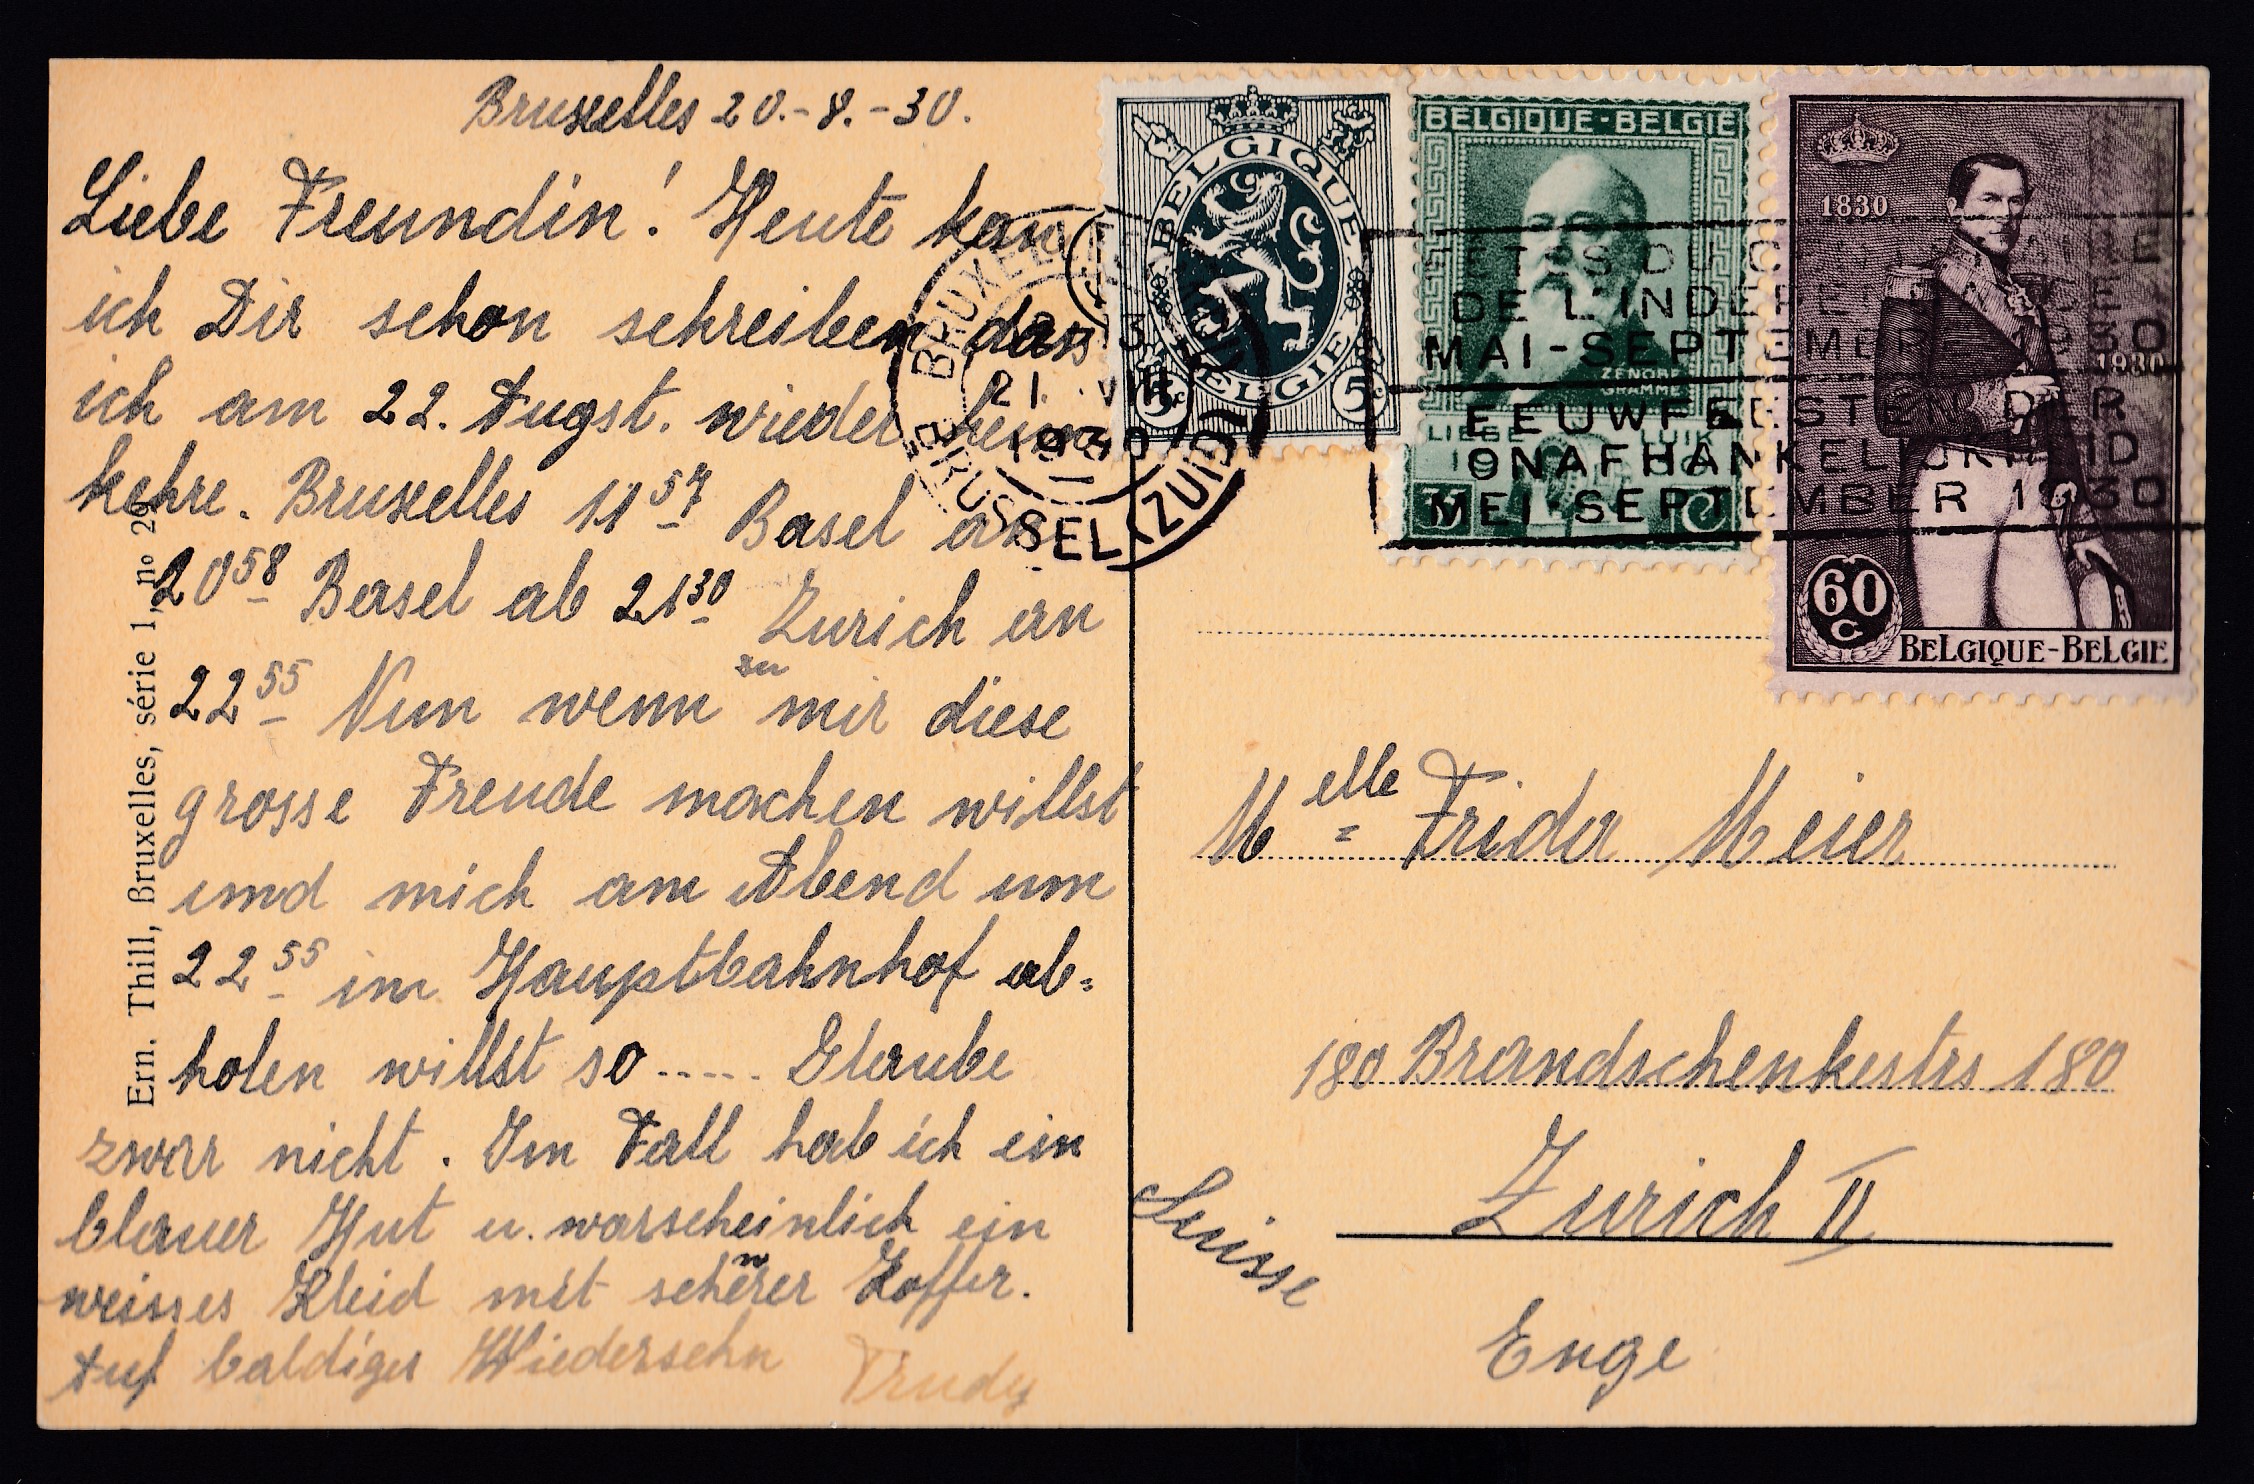 Bruxelles 20.-8.-30.
Liebe Freundin! Heute kan
ich Dir schon schreiben dass
ich am 22. Augst. wieder heim
kehre. Bruxelles 11 57 Basel an
20 58 Basel ab 21 30 Zurich an
22 55 Nun wenn su mir diese
grosse Freude machen willst
und mich am Abend um
22 55 im Hauptbahnhof ab=
holen willst so..... Glaube
zwar nicht. Im Fall hab ich ein
blauer Hut u. warscheinlich ein
weisses Kleid mit schwerer Koffer.
Auf baldiges Wiedersehn Trudy
Ern. Thill, Bruxelles, série 1, no 29
BELGIQUE
BELGIE
5c 5c
BELGIQUE-BELGIE
ZÉNOBE
GRAMME
LIEGE LUIK
1930
35 C
1830
1930
60 C
BELGIQUE-BELGIE
BRUXELLES
21 VIII
1930
BRUSSEL (ZUID)
DE L'INDEPENDANCE
MAI-SEPTEMBRE 1930
EEUWFEESTEN DER
ONAFHANKELIJKHEID
MEI-SEPTEMBER 1930
Melle Frida Meier
180 Brandschenkestrs 180
Zurich II
Suisse
Enge